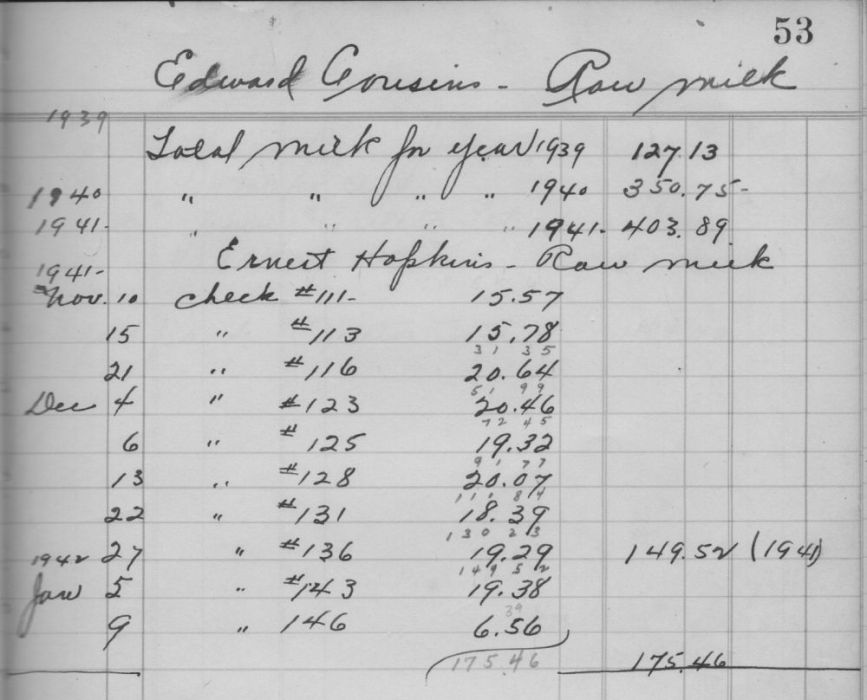 53
Edward Cousins - Raw milk
1939
Total milk for year 1939 127.13
1940 " " " " 1940 350.75-
1941- " " " " 1941- 403.89
Ernest Hopkins - Raw milk
1941-
Nov. 10 check #111- 15.57
15 " #113 15.78
31 35
21 " #116 20.64
51 99
Dec 4 " #123 20.46
72 45
6 " # 125 19.32
91 77
13 " #128 20.07
111 84
22 " #131 18.39
130 23
27 " #136 19.29 149.52 (1941)
1942 149 52
Jan 5 " #143 19.38
39
9 " 146 6.56
175.46 175.46